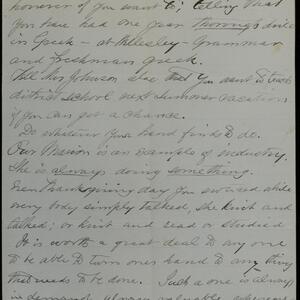 honorer if you want to; telling that
you have had one year thorough drill
in Greek – at Wellesley – Grammar
and freshman Greek.
Tell Mrs Johnson also that you want to teach
district school next summer vacation
if you can get a chance.
Do whatever your hand finds to do.
Poor Marion is an example of industry.
She is always doing something.
Even Thanksgiving day you noticed while
every body simply talked, she knit and
talked; or knit and read or studied
It is worth a great deal to any one
to be able to turn ones hand to any thing
that needs to be done. Such a one is always
in demand, always valuable